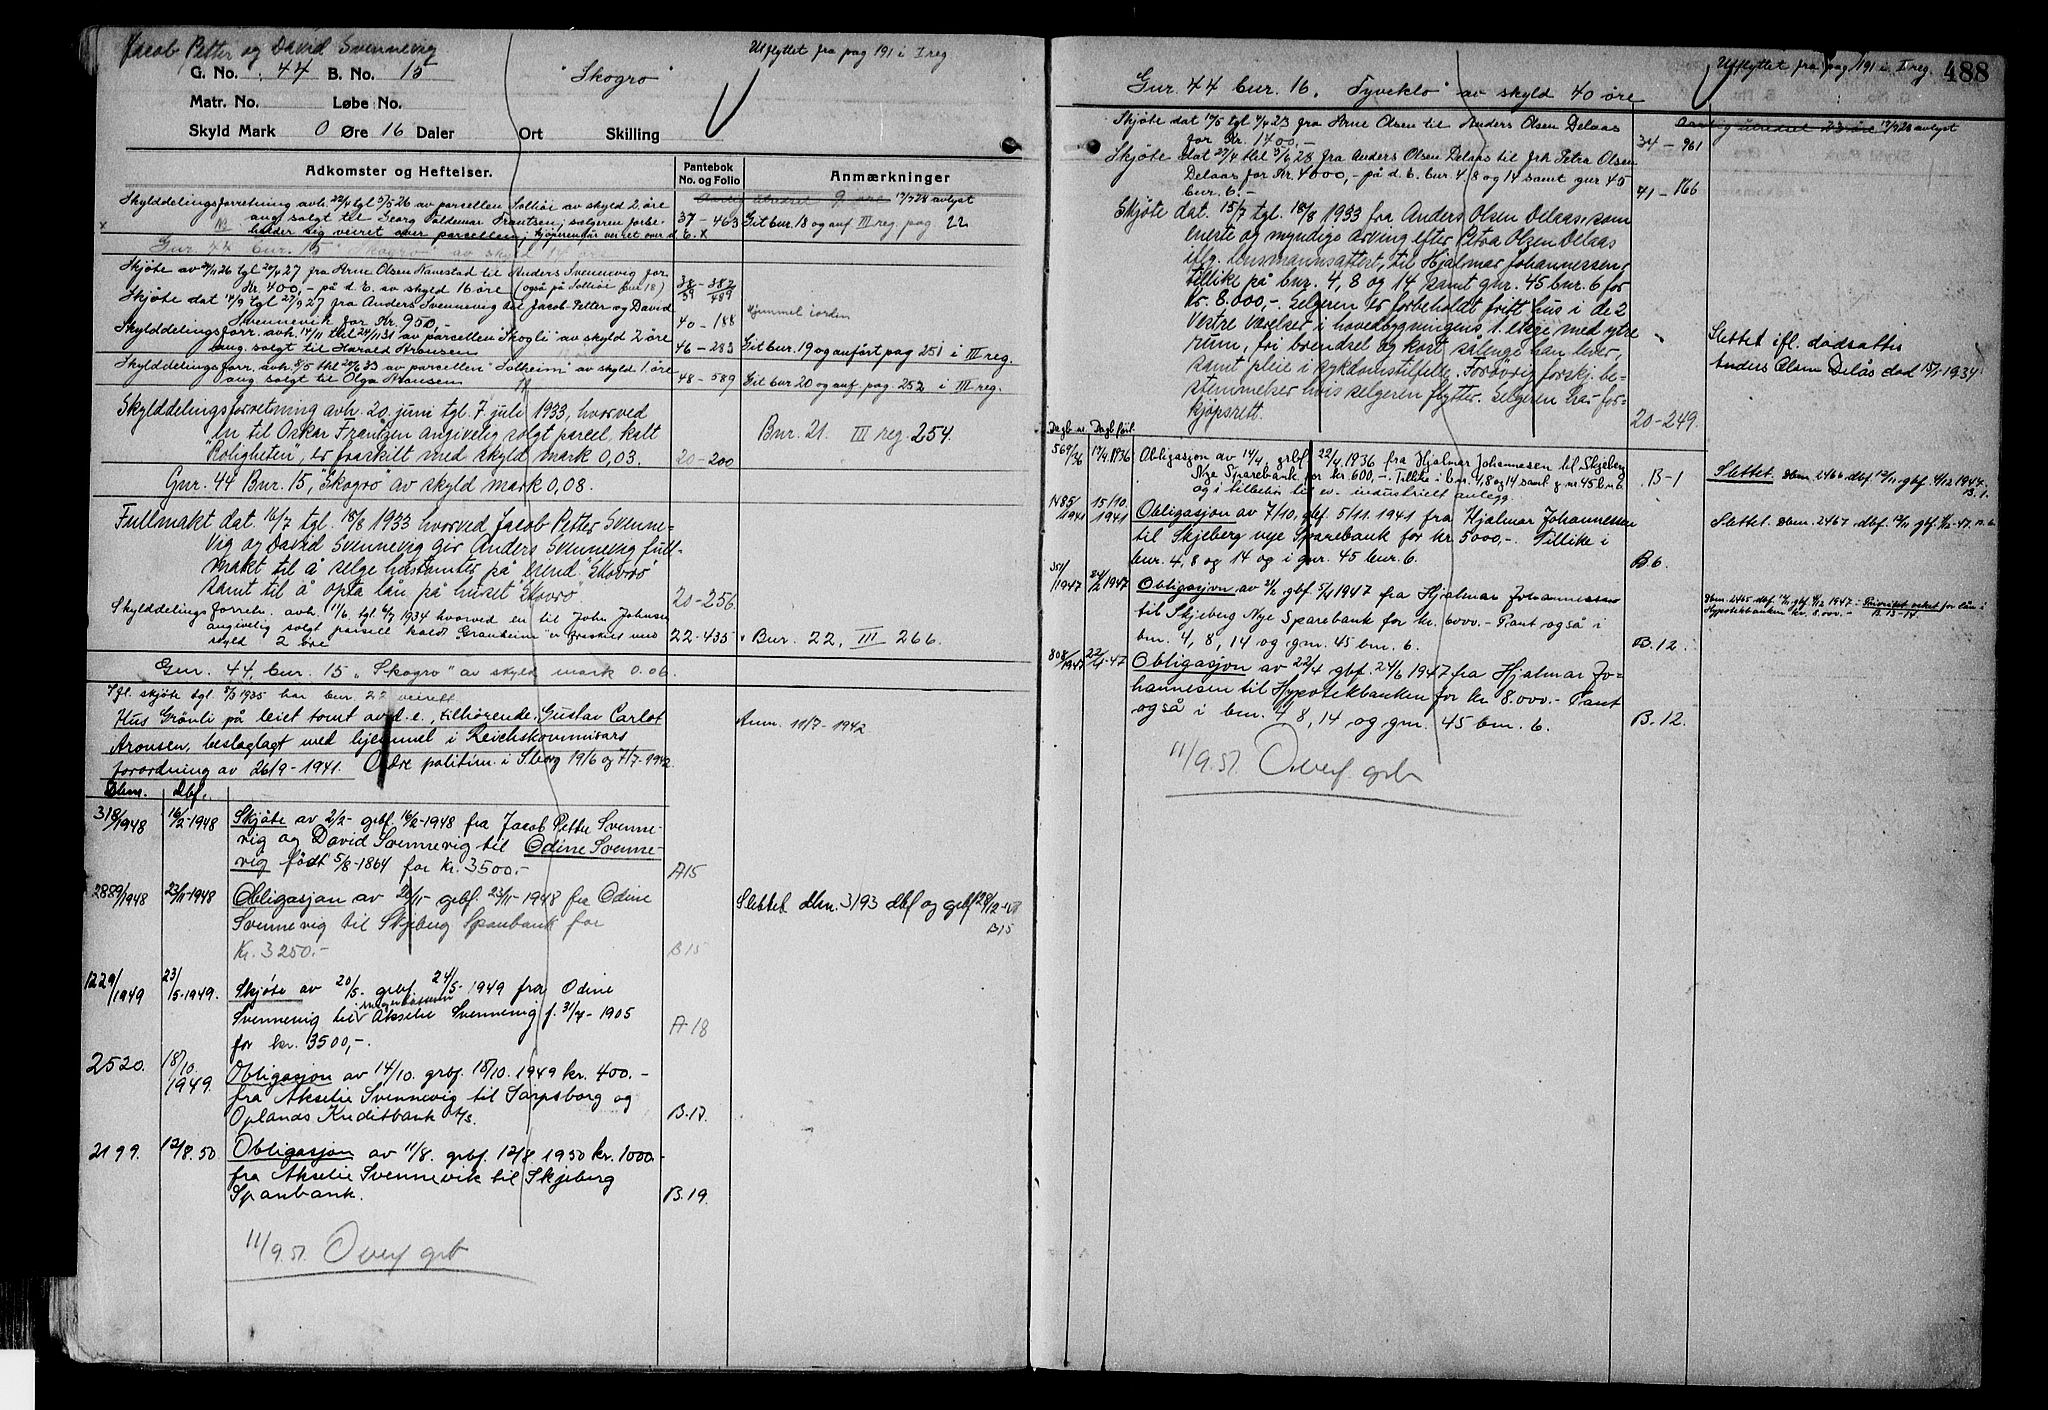 Jacob Petter og David Svennevig
G. No. 44 B. No. 15 "Skogro" Utflyttet fra pag 191 i I reg
Matr. No. Løbe No.
Skyld Mark 0 Øre 16 Daler Ort Skilling
Adkomster og Heftelser. Pantebok No. og Folio Anmærkninger
Aarlig utredsel 9 øre 19/9 28 avlyst
Skylddelingsforretning avh. tgl 26 av parcellen Solhöi av skyld 2 øre
ang. solgt til Georg Valdemar Frantsen; sælgeren forbe- 37-463 Git bur. 18 og anf III reg. pag 22
holder sig veiret over parcellen, kjøperen får veiret over d. E. x
Gnr. 44 bur. 15 Skogro av skyld 14 øre
Skjøte av 26 tgl 27 fra Arne Olsen Navestad til Anders Svennevig for
Kr 400,- på d. E. av skyld 16 øre (også på Solhöi bur 18) 38/39 - 382/489
Skjøte dat 14/9 tgl 27/9 27 fra Anders Svennevig til Jacob Petter og David
Svennevik for Kr. 950,- 40-188 Hjemmel iorden
Skylddelingsforr. avh. 14/11 tgl 24/11 31 av parcellen "Skogli" av skyld 2 øre
ang. solgt til Harald Aronsen 46-283 Git bur. 19 og anført pag 251 i III reg.
Skylddelingsforr. avh. 8/5 tgl 20/6 33 av parcellen "Solheim" av skyld 1 øre
ang solgt til Olga Aronsen 48-589 Git bur 20 og anf. pag. 252 i III reg.
Skylddelingsforretning avh. 20. juni tgl. 7 juli 1933, hvorved
en til Oskar Frantzen angivelig solgt parcel, kalt Bur. 21. III reg. 254.
"Roligheten", er fraskilt med skyld mark 0,03. 20-200
Gnr. 44 Bur. 15, "Skogro" av skyld mark 0,08.
Fullmakt dat. 16/7 tgl. 18/8 1933 hvorved Jacob Petter Svenne-
vig og David Svennevig gir Anders Svennevig full-
makt til å selge hustomter på eiend. "Skovro"
samt til å opta lån på huset "Skovro" 20-256
Skylddelingsforretn. avh. 11/6 tgl. 6/7 1934 hvorved en til John Johnsen
angivelig solgt parsell kaldt Granheim er fraskilt med 22-435 Bur. 22, III 266.
skyld 2 øre
Gnr. 44, bur. 15 "Skogro" av skyld mark 0.06.
Ifl. skjøte tgl. 8/3 1935 har bur 22 veirett
Hus Grönli på leiet tomt av d.e., tilhörende Gustav Carlot Anm. 11/7-1942
Aronsen, beslaglagt med hjemmel i Reichskommisars
forordning av 26/9-1941. Ordre politim. i S.borg 19/6 og 7/7-1942
Dbnr. Dbf.
318/1948 16/2-1948 Skjøte av 2/2- grbf. 16/2-1948 fra Jacob Petter Svenne-
vig og David Svennevig til Odine Svenne-
vig født 5/8-1864 for kr. 3500.- A15
2889/1948 23/11-1948 Obligasjon av 20/11- grbf. 23/11-1948 fra Odine Slettet dbn. 3193 dbf og grbf 29/12-48
Svennevig til Skjeberg Sparebank for B15
Kr. 3250.- B15
1229/1949 23/5-1949. Skjøte av 20/5. grbf. 24/5-1949 fra Odine
Svennevig til Akselie Svennevig f. 31/7-1905 A18
for kr. 3500,-.
2520. 18/10. 1949. Obligasjon av 14/10. grbf. 18/10. 1949 kr. 400.-
fra Akselie Svennevig til Sarpsborg og
Oplands Kreditbank A/S. B.17
2199. 12/8.50. Obligasjon av 11/8. grbf. 12/8 1950 kr. 1000.-
fra Akselie Svennevik til Skjeberg
Sparebank. B.19.
11/9.51 Overf grb
488
Utflyttet fra pag 191 i I reg.
Gnr. 44 bur. 16. "Tyveklo" av skyld 40 øre
Aarlig utredsel 23 øre 19/9 28 avlyst
Skjøte dat 17/5 tgl 23 fra Arne Olsen til Anders Olsen Delaas
for Kr. 1400,- 34-961
Skjøte dat 27/4 tgl 5/6 28 fra Anders Olsen Delaas til frk Petra Olsen
Delaas for Kr. 4000,- på d. E. bur. 4, 8 og 14 samt gnr 45 41-166
bur. 6.-
Skjøte dat. 15/7 tgl. 18/8 1933 fra Anders Olsen Delaas, som
eneste og myndige arving efter Petra Olsen Delaas
iflg. lensmannsattest, til Hjalmar Johannessen,
tillike på bur. 4, 8 og 14 samt gnr. 45 bur. 6 for
kr. 8.000,-. Selgeren er forbeholdt fritt hus i de 2
vestre værelser i hovedbygningens 1. etage med ytre
rum, fri brendsel og kost sålenge han lever, Slettet ifl. dødsattest
samt pleie i sykdomstilfelle. Forøvrig forskj. be- Anders Olsen Delås død 15/1-1934
stemmelser hvis selgeren flytter. Selgeren har for-
kjøpsrett. 20-249.
Dagb nr. Dagb ført
569/36 17/4 1936 Obligasjon av 14/4, grbf. 22/4 1936 fra Hjalmar Johannesen til Skjeberg
Nye Sparebank for kr. 600,- Tillike i bnr. 4, 8 og 14 samt gnr. 45 bnr. 6 B-1 Slettet. Dbnr. 2466 dbf. 12/11 gbf. 4/12 1947. B.1.
og i tilbehør til ev. industrielt anlegg.
1485/1941 15/10. 1941 Obligasjon av 7/10. gbf. 5/11. 1941 fra Hjalmar Johannessen Slettet. Dbnr. 2467. dbf. 12/11 gbf. 4/12-47. B.6
til Skjeberg nye Sparebank for kr 5000,-. Tillike i
bur. 4, 8 og 14 og i gnr. 45 bur. 6. B.6.
1947 1947 Obligasjon av gbf. 1947 fra Hjalmar Johannessen Dbnr. 2465 dbf. 12/11 gbf. 4/12 1947: Prioritet veket for lån i
til Skjeberg Nye Sparebank for kr. 6000.- Pant også i Hypotekbanken kr. 8.000.-
bnr. 4, 8, 14 og gnr. 45 bnr. 6. B.12.
808/1947 22/4-47 Obligasjon av 22/4 gbf. 24/6 1947 fra Hjalmar Jo-
hannesen til Hypotekbanken for kr 8.000.- Pant
også i bnr. 4, 8, 14 og gnr. 45 bnr. 6. B.12.
11/9.51. Overf. grb